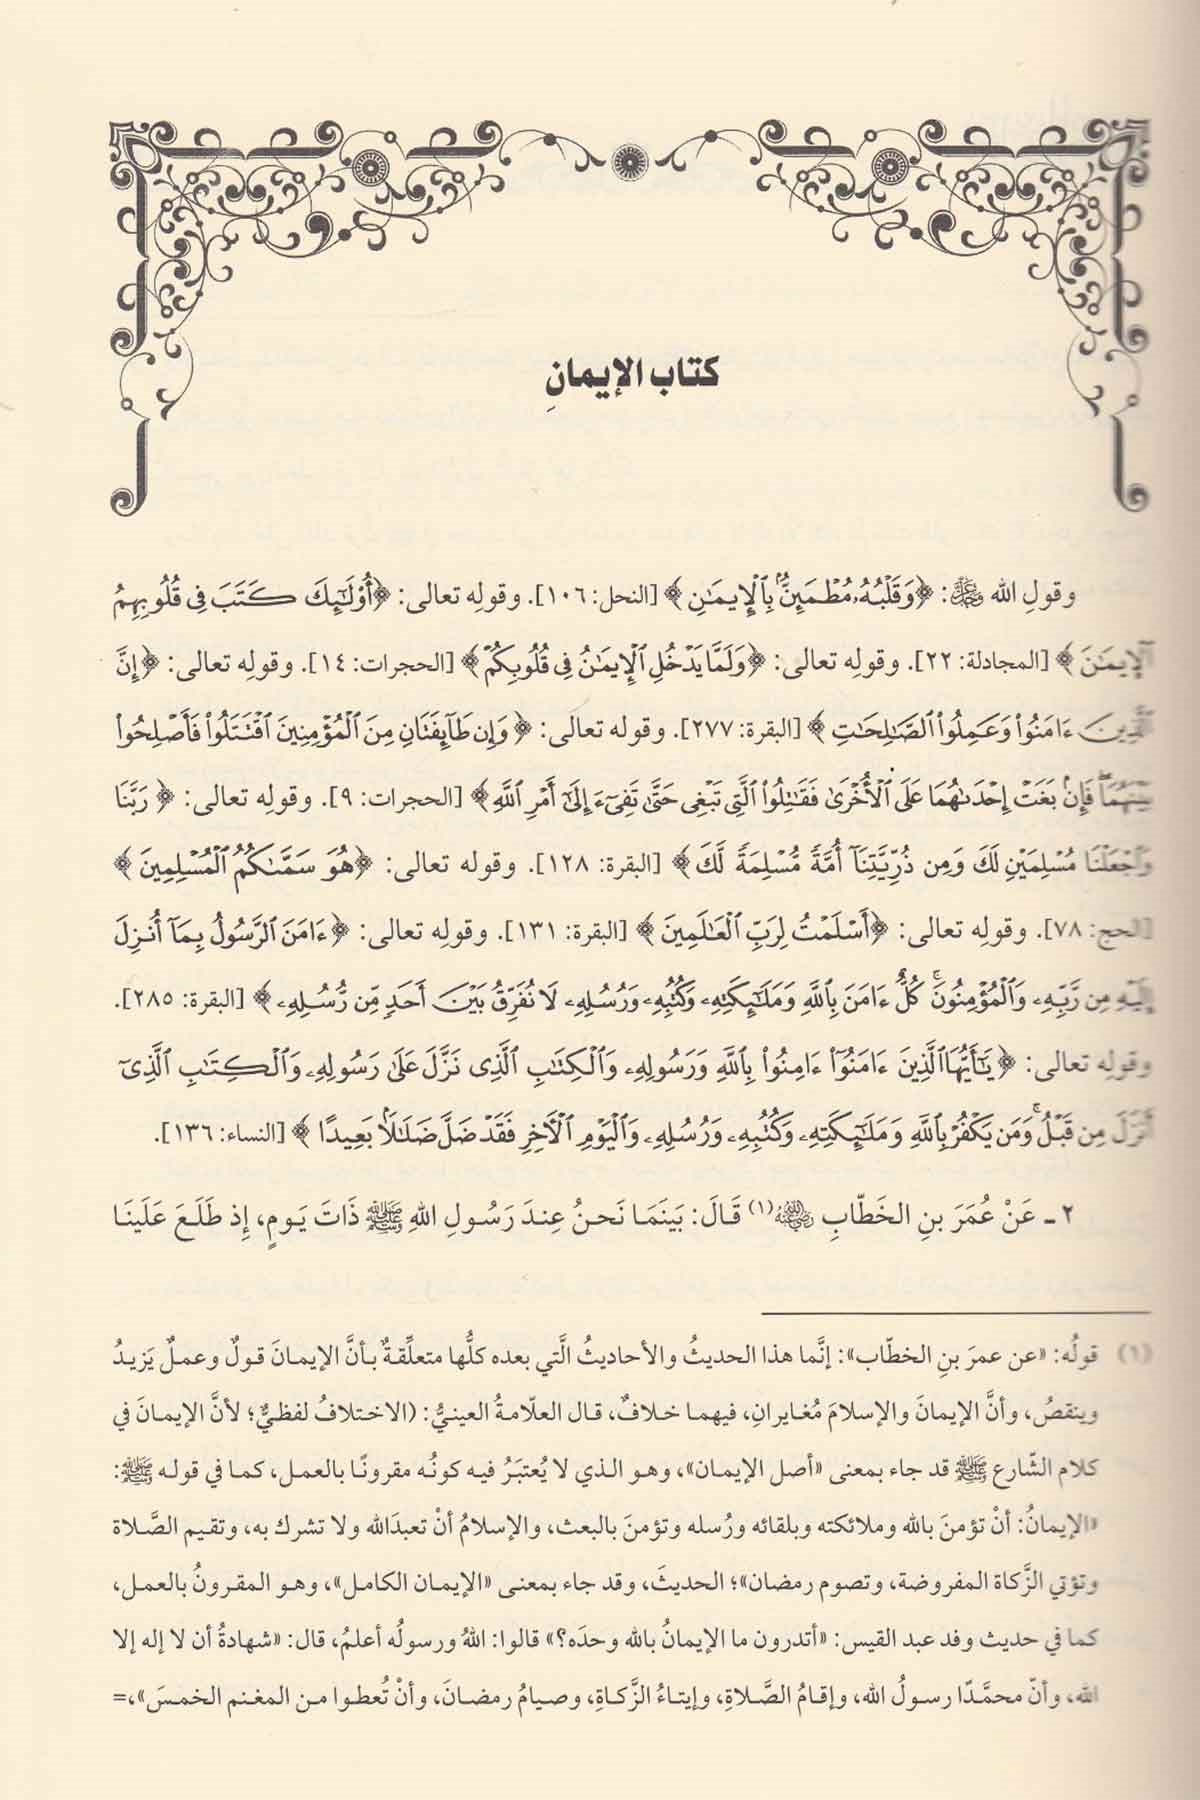 كتاب الإيمانِ
وقولِ الله ﷿: ﴿وَقَلْبُهُۥ مُطْمَئِنٌّۢ بِٱلْإِيمَـٰنِ﴾ [النحل: ١٠٦]. وقولِه تعالى: ﴿أُوْلَـٰٓئِكَ كَتَبَ فِى قُلُوبِهِمُ
ٱلْإِيمَـٰنَ﴾ [المجادلة: ٢٢]. وقولِه تعالى: ﴿وَلَمَّا يَدْخُلِ ٱلْإِيمَـٰنُ فِى قُلُوبِكُمْ﴾ [الحجرات: ١٤]. وقولِه تعالى: ﴿إِنَّ
ٱلَّذِينَ ءَامَنُوا۟ وَعَمِلُوا۟ ٱلصَّـٰلِحَـٰتِ﴾ [البقرة: ٢٧٧]. وقوله تعالَى: ﴿وَإِن طَآئِفَتَانِ مِنَ ٱلْمُؤْمِنِينَ ٱقْتَتَلُوا۟ فَأَصْلِحُوا۟
بَيْنَهُمَا ۖ فَإِنۢ بَغَتْ إِحْدَىٰهُمَا عَلَى ٱلْأُخْرَىٰ فَقَـٰتِلُوا۟ ٱلَّتِى تَبْغِى حَتَّىٰ تَفِىٓءَ إِلَىٰٓ أَمْرِ ٱللَّهِ﴾ [الحجرات: ٩]. وقولِه تعالى: ﴿رَبَّنَا
وَٱجْعَلْنَا مُسْلِمَيْنِ لَكَ وَمِن ذُرِّيَّتِنَآ أُمَّةً مُّسْلِمَةً لَّكَ﴾ [البقرة: ١٢٨]. وقوله تعالى: ﴿هُوَ سَمَّىٰكُمُ ٱلْمُسْلِمِينَ﴾
[الحج: ٧٨]. وقولِه تعالى: ﴿أَسْلَمْتُ لِرَبِّ ٱلْعَـٰلَمِينَ﴾ [البقرة: ١٣١]. وقولِه تعالى: ﴿ءَامَنَ ٱلرَّسُولُ بِمَآ أُنزِلَ
إِلَيْهِ مِن رَّبِّهِۦ وَٱلْمُؤْمِنُونَ ۚ كُلٌّ ءَامَنَ بِٱللَّهِ وَمَلَـٰٓئِكَتِهِۦ وَكُتُبِهِۦ وَرُسُلِهِۦ لَا نُفَرِّقُ بَيْنَ أَحَدٍ مِّن رُّسُلِهِۦ﴾ [البقرة: ٢٨٥].
وقولِه تعالى: ﴿يَـٰٓأَيُّهَا ٱلَّذِينَ ءَامَنُوٓا۟ ءَامِنُوا۟ بِٱللَّهِ وَرَسُولِهِۦ وَٱلْكِتَـٰبِ ٱلَّذِى نَزَّلَ عَلَىٰ رَسُولِهِۦ وَٱلْكِتَـٰبِ ٱلَّذِىٓ
أَنزَلَ مِن قَبْلُ ۚ وَمَن يَكْفُرْ بِٱللَّهِ وَمَلَـٰٓئِكَتِهِۦ وَكُتُبِهِۦ وَرُسُلِهِۦ وَٱلْيَوْمِ ٱلْـَٔاخِرِ فَقَدْ ضَلَّ ضَلَـٰلًۢا بَعِيدًا﴾ [النساء: ١٣٦].
٢ ـ عَنْ عُمَرَ بنِ الخَطّابِ ﵁(١) قَالَ: بَينَمَا نَحنُ عِندَ رَسُولِ اللهِ ﷺ ذَاتَ يَومٍ، إِذ طَلَعَ عَلَينَا
(١) قولُه: «عن عمرَ بنِ الخطّاب»: إنَّما هذا الحديثُ والأحاديثُ الَّتي بعده كلُّها متعلِّقةٌ بأنَّ الإيمانَ قولٌ وعملٌ يَزيدُ
وينقصُ، وأنَّ الإيمانَ والإسلامَ مُغايرانِ، فيهما خلافٌ، قال العلّامةُ العينيُّ: (الاختلافُ لفظيٌّ؛ لأنَّ الإيمانَ في
كلام الشّارع ﷺ قد جاء بمعنى «أصل الإيمان»، وهو الذي لا يُعتبَرُ فيه كونُه مقرونًا بالعمل، كما في قوله ﷺ:
«الإيمانُ: أنْ تؤمنَ بالله وملائكته وبلقائه ورُسله وتؤمنَ بالبعث، والإسلامُ أنْ تعبدَالله ولا تشرك به، وتقيم الصَّلاة
وتؤتي الزَّكاة المفروضة، وتصوم رمضان»؛ الحديثَ، وقد جاء بمعنى «الإيمان الكامل»، وهو المقرونُ بالعمل،
كما في حديث وفد عبد القيس: «أتدرون ما الإيمانُ بالله وحدَه؟» قالوا: اللهُ ورسولُه أعلمُ، قال: «شهادةُ أن لا إله إلا
الله، وأنّ محمَّدًا رسولُ الله، وإقامُ الصَّلاةِ، وإيتاءُ الزَّكاةِ، وصيامُ رمضانَ، وأنْ تُعطوا من المغنم الخمسَ»،=